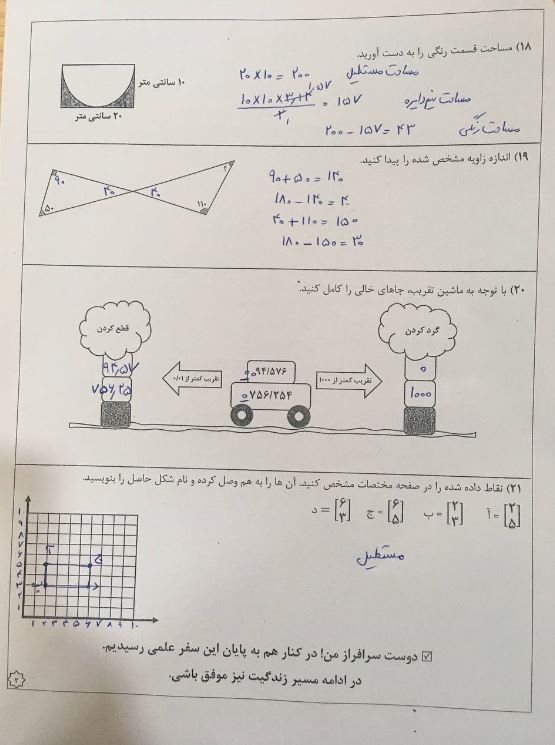 ۱۸) مساحت قسمت رنگی را به دست آورید.
۱۰ سانتی متر
۲۰ سانتی متر
مساحت مستطیل ۲۰ × ۱۰ = ۲۰۰
مساحت نیم دایره ۱۰ × ۱۰ × ۳/۱۴ / ۲ = ۱۵۷
۱/۵۷
۱
مساحت رنگی ۲۰۰ - ۱۵۷ = ۴۳
۱۹) اندازه زاویه مشخص شده را پیدا کنید.
۹۰
۵۰
۴۰
۴۰
۱۱۰
؟
۹۰ + ۵۰ = ۱۴۰
۱۸۰ - ۱۴۰ = ۴۰
۴۰ + ۱۱۰ = ۱۵۰
۱۸۰ - ۱۵۰ = ۳۰
۲۰) با توجه به ماشین تقریب، جاهای خالی را کامل کنید.
قطع کردن
۹۴/۵۷
۷۵۶/۲۵
تقریب کمتر از ۰/۰۱
۰۹۴/۵۷۶
۰۷۵۶/۲۵۴
تقریب کمتر از ۱۰۰۰
گرد کردن
۰
۱۰۰۰
۲۱) نقاط داده شده را در صفحه مختصات مشخص کنید. آن ها را به هم وصل کرده و نام شکل حاصل را بنویسید.
آ = [۲ ۵] ب = [۲ ۳] ج = [۶ ۵] د = [۶ ۳]
مستطیل
۱۰
۹
۸
۷
۶
۵
۴
۳
۲
۱
آ
ج
ب
د
۱ ۲ ۳ ۴ ۵ ۶ ۷ ۸ ۹ ۱۰
☑ دوست سرافراز من! در کنار هم به پایان این سفر علمی رسیدیم.
در ادامه مسیر زندگیت نیز موفق باشی.
۳